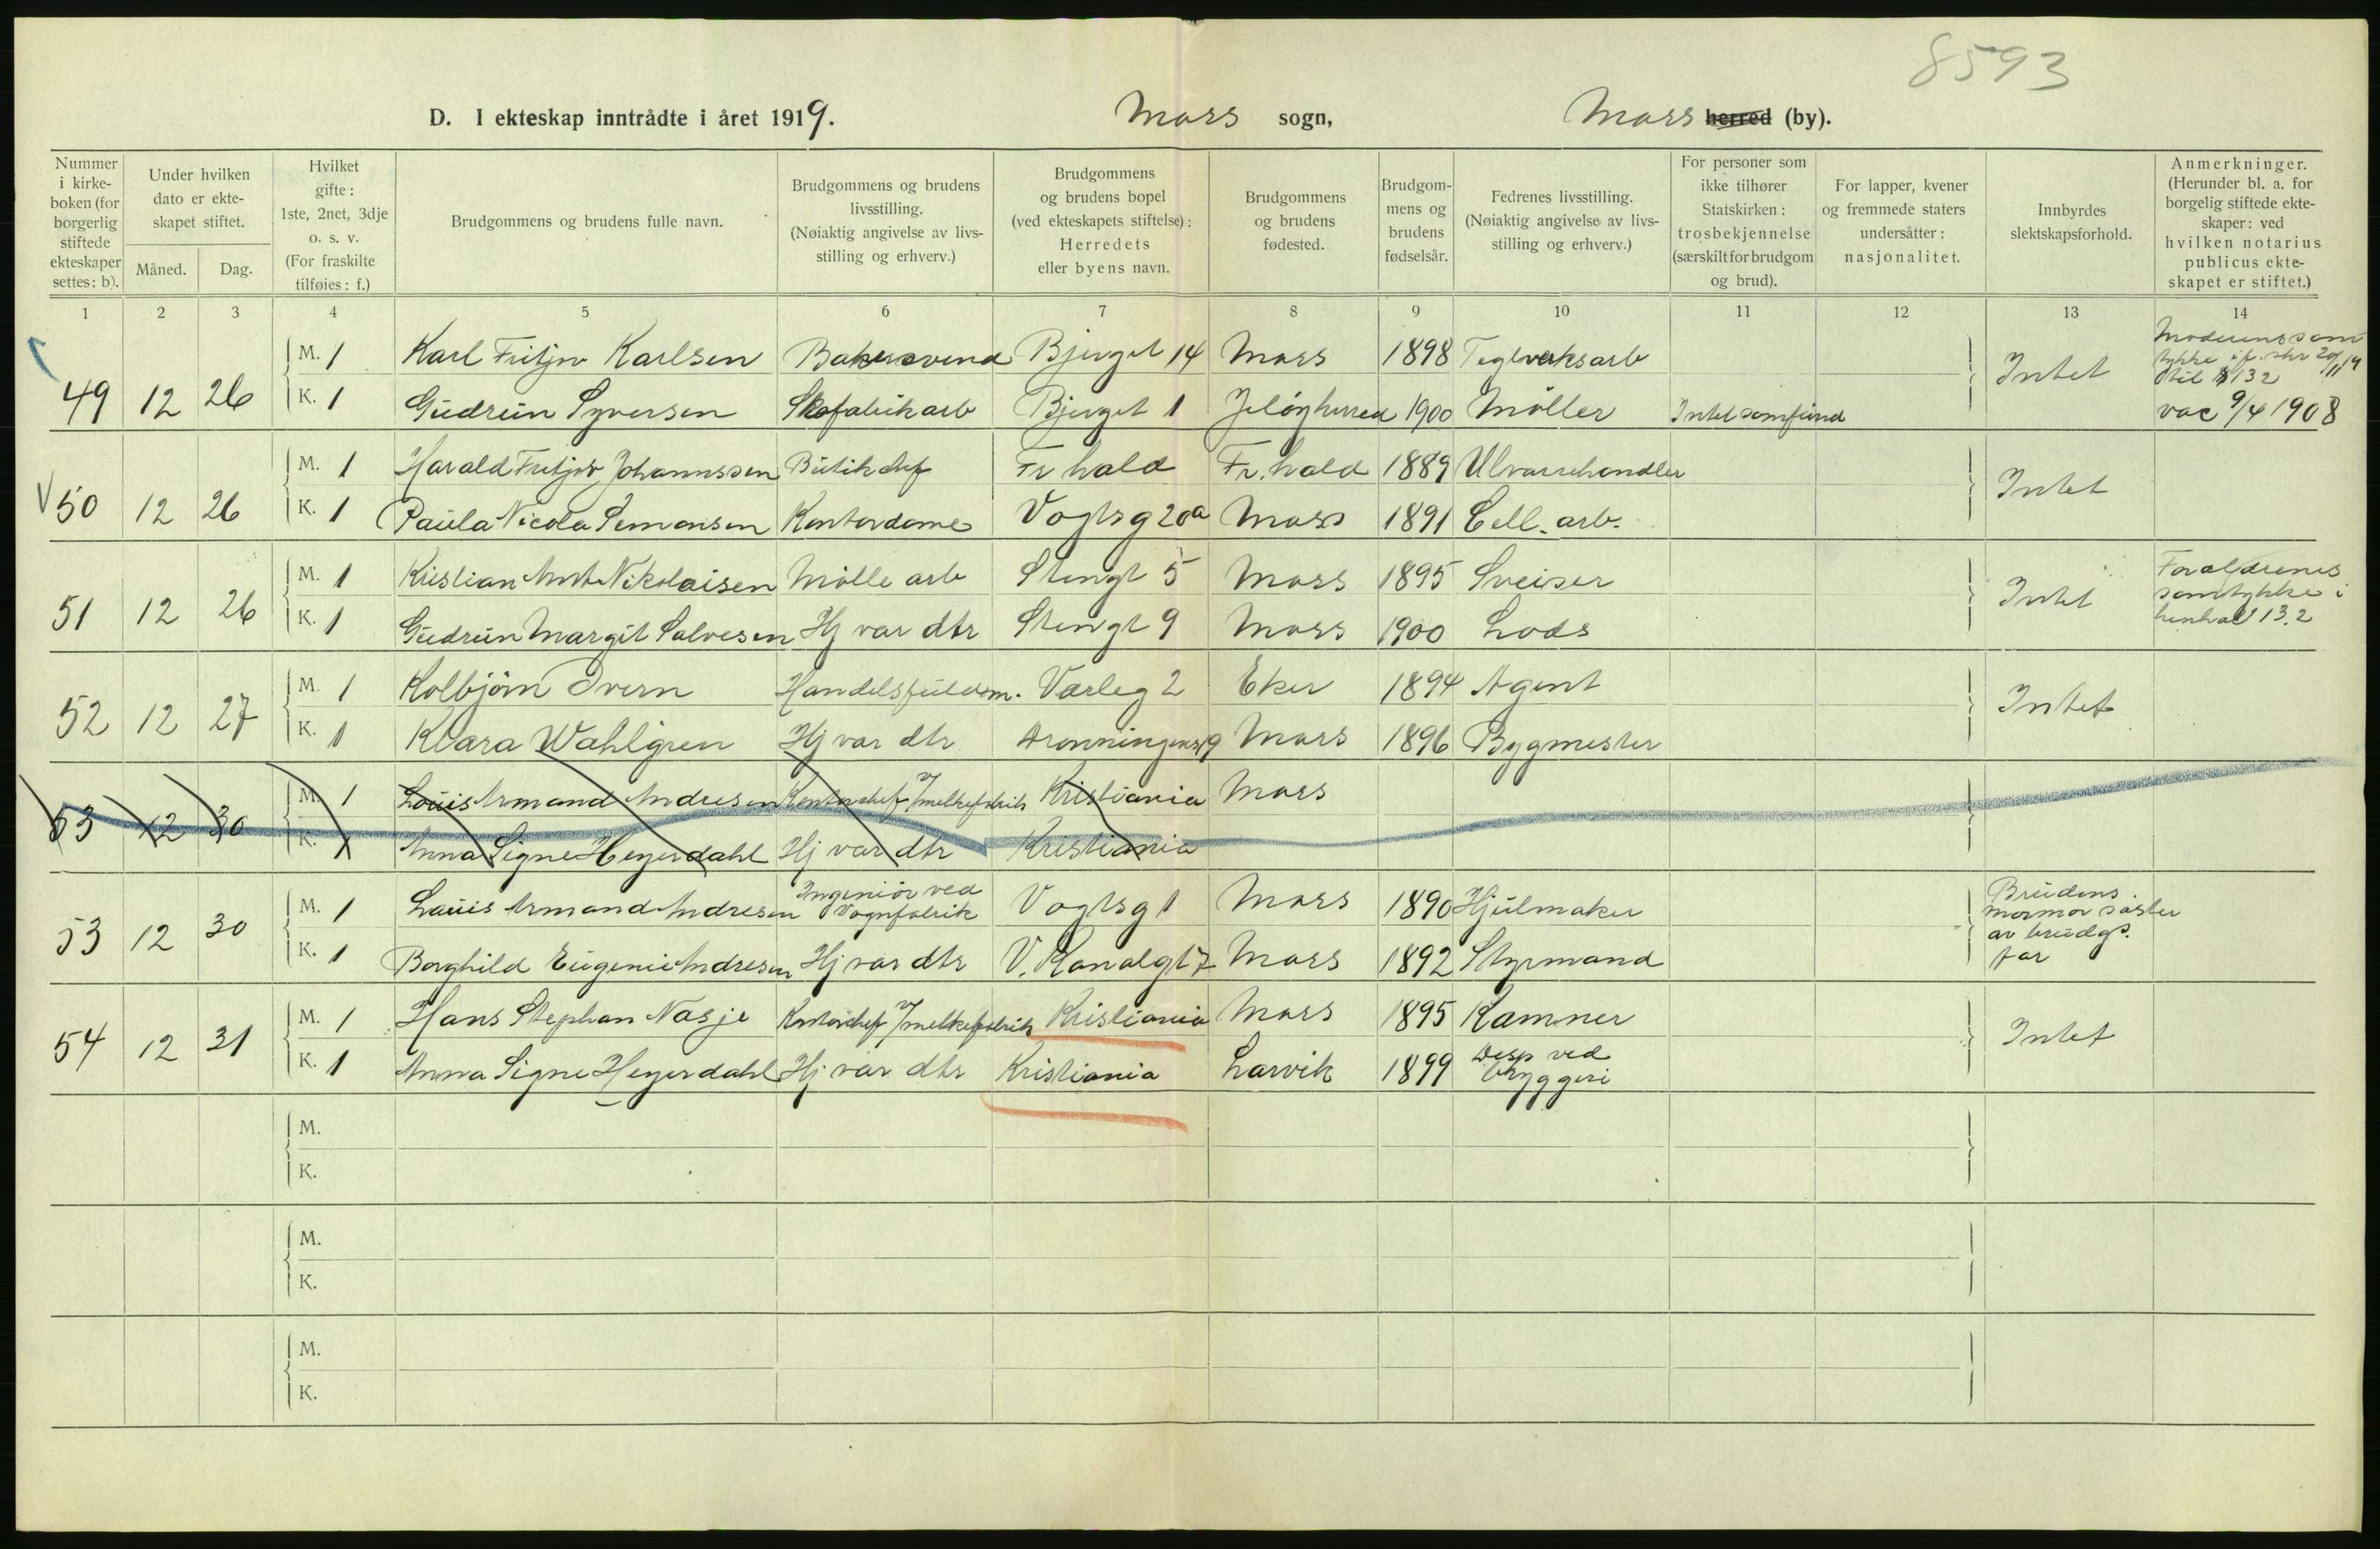 8593
D. I ekteskap inntrådte i året 1919. Moss sogn, Moss herred (by).
Nummer i kirkeboken (for borgerlig stiftede ekteskaper settes: b).
Under hvilken dato er ekteskapet stiftet.
Måned. Dag.
Hvilket gifte: 1ste, 2net, 3dje o. s. v. (For fraskilte tilføies: f.)
Brudgommens og brudens fulle navn.
Brudgommens og brudens livsstilling. (Nøiaktig angivelse av livsstilling og erhverv.)
Brudgommens og brudens bopel (ved ekteskapets stiftelse): Herredets eller byens navn.
Brudgommens og brudens fødested.
Brudgommens og brudens fødselsår.
Fedrenes livsstilling. (Nøiaktig angivelse av livsstilling og erhverv.)
For personer som ikke tilhører Statskirken: trosbekjennelse (særskilt for brudgom og brud).
For lapper, kvener og fremmede staters undersåtter: nasjonalitet.
Innbyrdes slektskapsforhold.
Anmerkninger. (Herunder bl. a. for borgelig stiftede ekteskaper: ved hvilken notarius publicus ekteskapet er stiftet.)
1 2 3 4 5 6 7 8 9 10 11 12 13 14
M. 1 Karl Fritjov Karlsen Bakersvend Bjerget 14 Moss 1898 Teglverksarb
49 12 26 K. 1 Gudrun Syversen Skofabrikarb Bjerget 1 Jeløyherred 1900 Møller Intet samfund Intet
vac 9/4 1908
M. 1 Harald Fritjov Johannssen Butikchef Fr hald Fr. hald 1889 Ulvarehandler
V 50 12 26 K. 1 Paula Nicola Simonsen Kontordame Vogtsg 20a Moss 1891 Cell. arb. Intet
M. 1 Kristian Nikolaisen Mølle arb Stengt 5 Moss 1895 Sveiser
51 12 26 K. 1 Gudrun Margit Salvesen Hj var dtr Stengt 9 Moss 1900 Lods Intet
Forældrenes
samtykke i
henhol 13.2
M. 1 Kolbjørn Ivern Handelsfuldm. Varleg 2 Eker 1894 Agent
52 12 27 K. 1 Klara Wahlgren Hj var dtr Dronningens 19 Moss 1896 Bygmester Intet
M. 1 Louis Armand Andresen Kontorchef v/ melkefabrik Kristiania Moss
53 12 30 K. 1 Anna Signe Heyerdahl Hj var dtr Kristiania
M. 1 Louis Armand Andresen Ingeniør ved Vognfabrik Vogtsg 1 Moss 1890 Hjulmaker
53 12 30 K. 1 Borghild Eugenie Andresen Hj var dtr V. Kanalgt 7 Moss 1892 Styrmand
Brudens
mormor søster
av brudgs.
far
M. 1 Hans Stephan Nasje Kontorchef v/ melkefabrik Kristiania Moss 1895 Kæmner
54 12 31 K. 1 Anna Signe Heyerdahl Hj var dtr Kristiania Larvik 1899 Desp ved bryggeri Intet
M.
K.
M.
K.
M.
K.